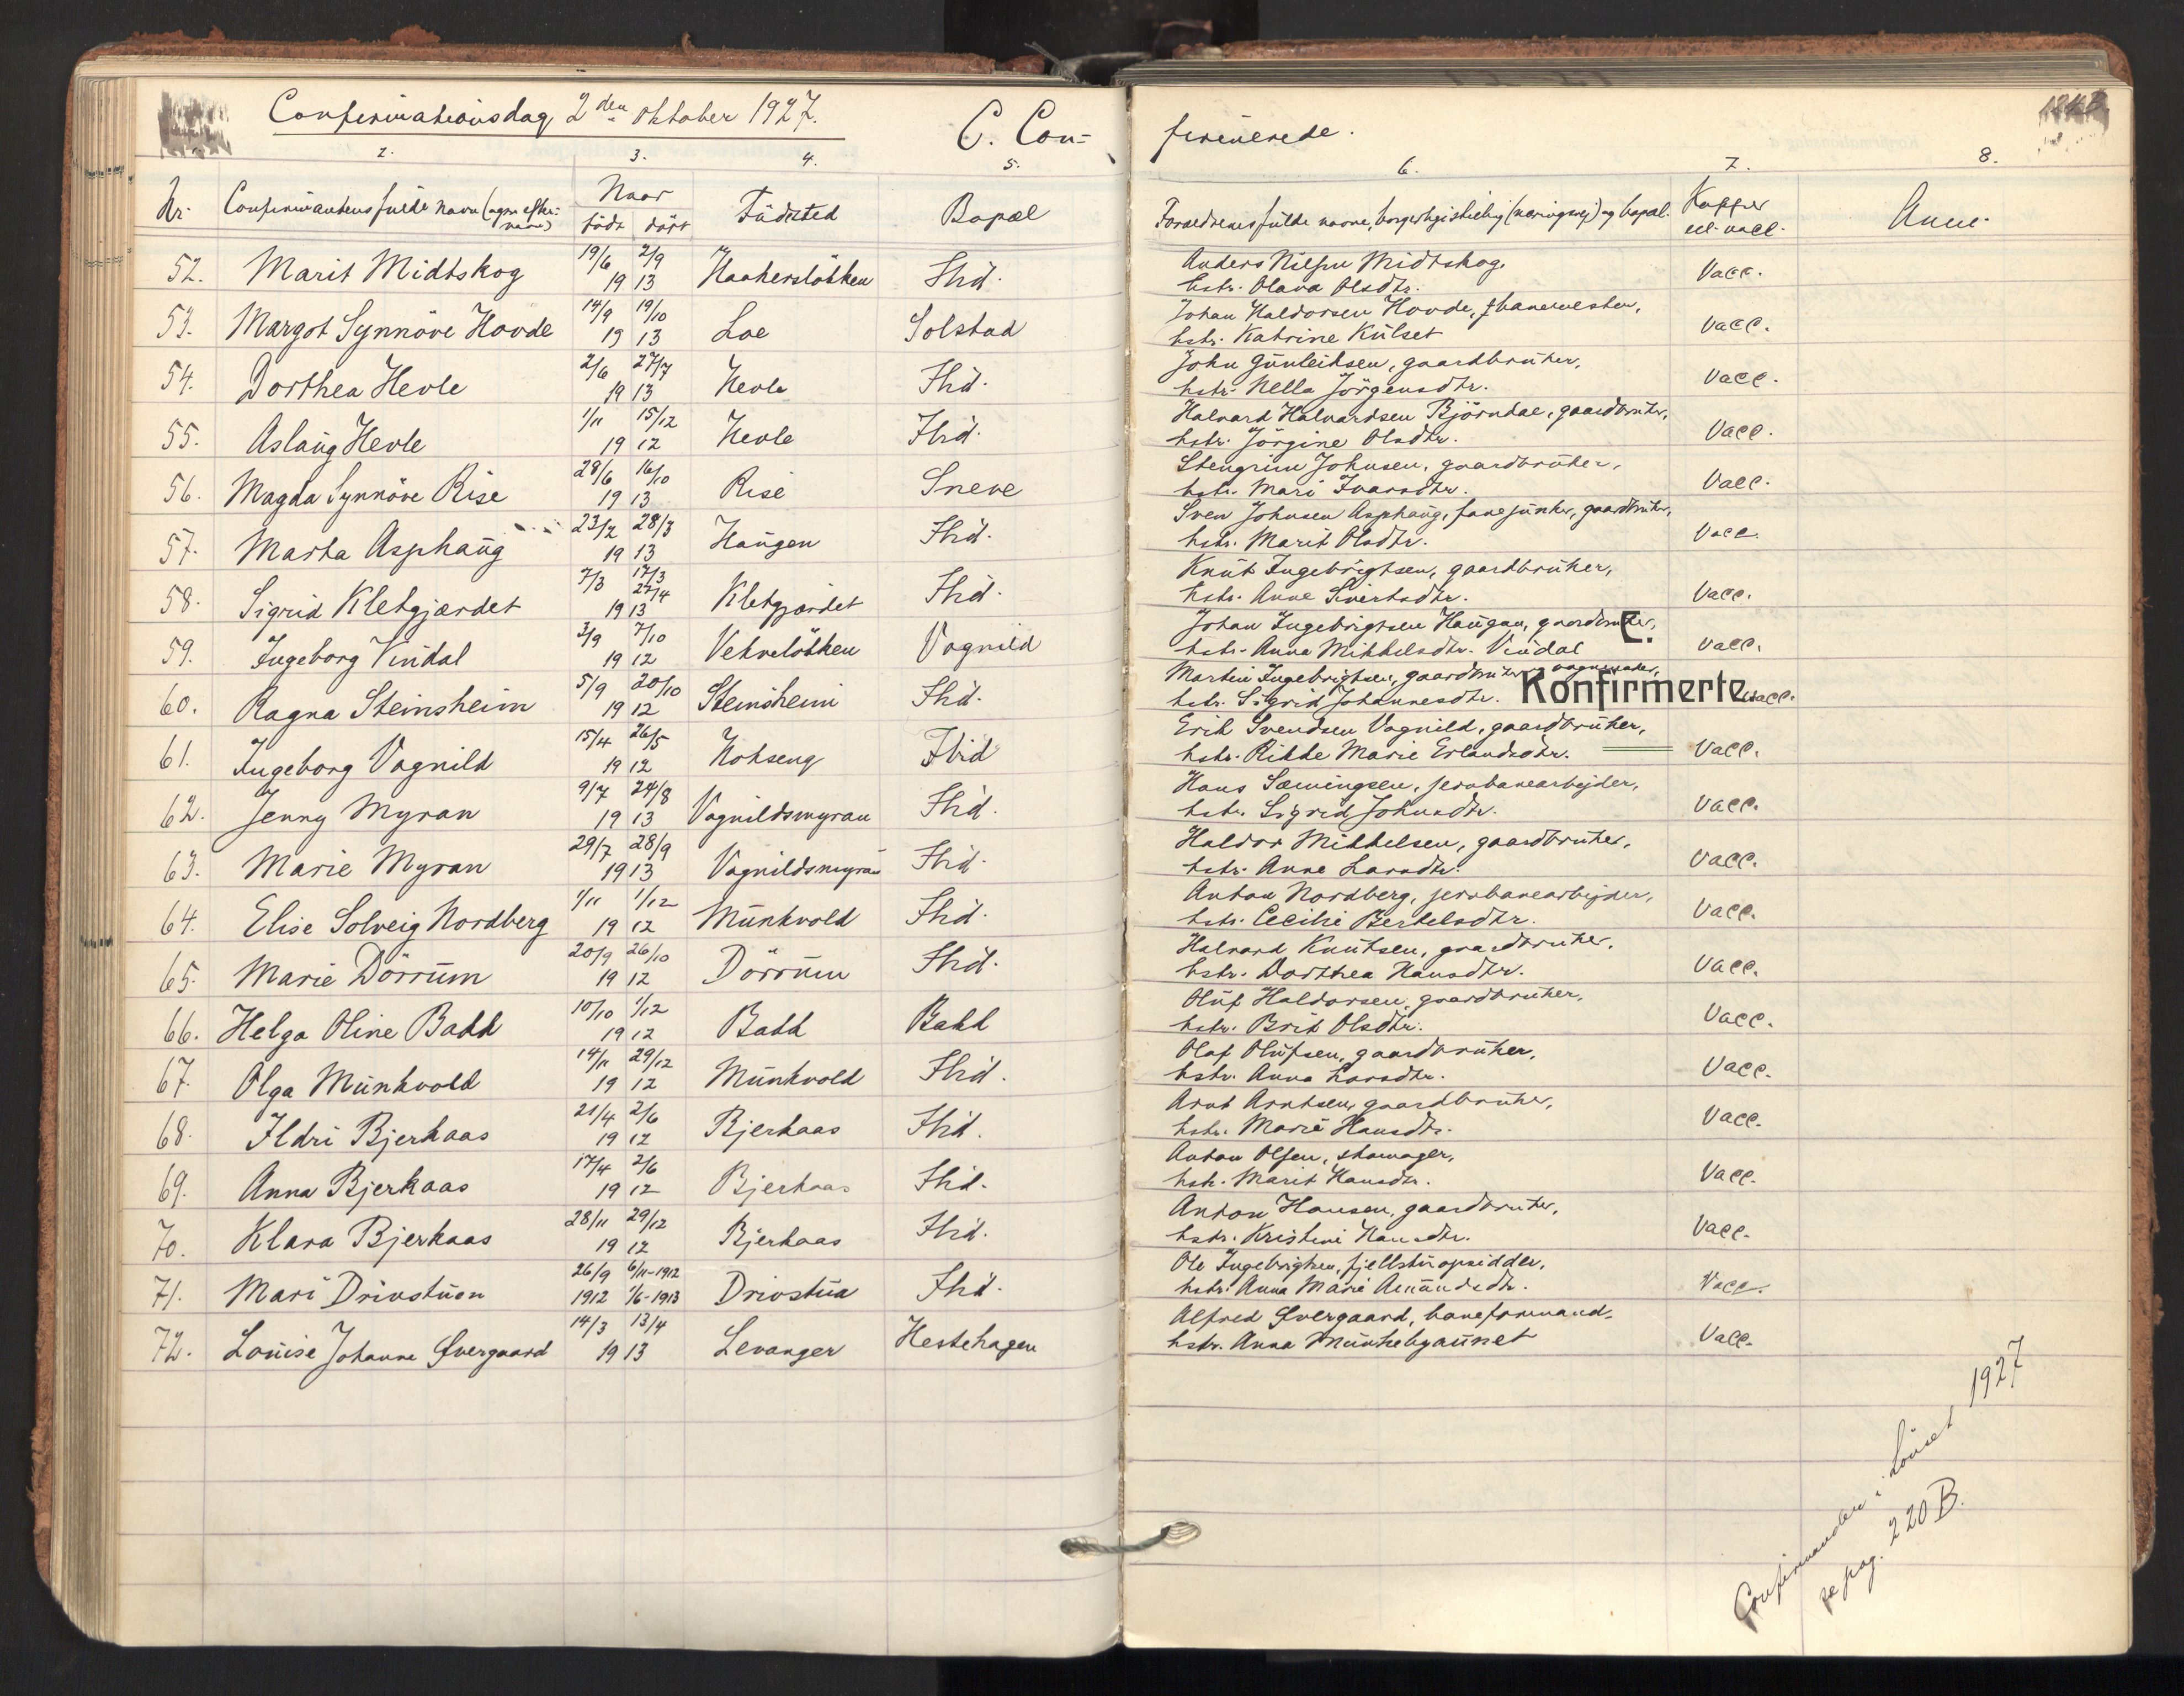 Confirmationsdag 2den oktober 1927.
C. Con-
firmerede.
2. 3. 4. 5. 6. 7. 8.
Nr. Confirmantens fulde navn (ogsaa efternavn) Naar født døpt Födested Bopæl Forældrenes fulde navne, borgerlige stilling (næringsvej) og bopæl. Kopper ell. vacc. Anm.
52. Marit Midtskog 19/6 2/9 Haakerslökken Ibid. Anders Nilsen Midtskog, Vacc.
19 13 hstr. Olava Olsdtr.
53. Margot Synnöve Hovde 14/9 19/10 Loe Solstad Johan Haldorsen Hovde, banemester, Vacc.
19 13 hstr. Katrine Külset
54. Dorthea Hevle 2/6 27/7 Hevle Ibid. John Gunleiksen, gaardbruker, Vacc.
19 13 hstr. Nella Jörgensdtr.
55. Aslaug Hevle 1/11 15/12 Hevle Ibid. Halvard Halvardsen Björndal, gaardbruker, Vacc.
19 12 hstr. Jörgine Olsdtr.
56. Magda Synnöve Rise 28/6 16/10 Rise Sneve Stengrim Johnsen, gaardbruker, Vacc.
19 13 hstr. Mari Ivarsdtr.
57. Marta Asphaug 23/2 28/3 Haugen Ibid. Sven Johnsen Asphaug, fanejunker, gaardbruker, Vacc.
19 13 hstr. Marit Olsdtr.
58. Sigrid Kletgjærdet 7/3 17/3 27/4 Kletgjærdet Ibid. Knut Ingebrigtsen, gaardbruker, Vacc.
19 13 hstr. Anne Sivertsdtr.
59. Ingeborg Vindal 3/9 7/10 Vekvelökken Vognild Johan Ingebrigtsen Haugan, gaardbruker, Vacc.
19 12 hstr. Anna Mikkelsdtr. Vindal
C.
Konfirmerte.
60. Ragna Steinsheim 5/9 20/10 Steinsheim Ibid. Martin Ingebrigtsen, gaardbruker og vognmaker, Vacc.
19 12 hstr. Sigrid Johannesdtr.
61. Ingeborg Vognild 15/4 26/5 Kokseng Ibid Erik Svendsen Vognild, gaardbruker, Vacc.
19 12 hstr. Rikke Marie Erlandsdtr.
62. Jenny Myran 9/7 24/8 Vognildsmyran Ibid. Hans Sæmingsen, jernbanearbejder, Vacc.
19 13 hstr. Sigrid Johnsdtr.
63. Marie Myran 29/7 28/9 Vognildsmyran Ibid. Haldor Mikkelsen, gaardbruker, Vacc.
19 13 hstr. Anne Larsdtr.
64. Elise Solveig Nordberg 1/11 1/12 Munkvold Ibid. Anton Nordberg, jernbanearbejder, Vacc.
19 12 hstr. Cecilie Bertelsdtr.
65. Marie Dörrum 20/9 26/10 Dörrum Ibid. Halvard Knutsen, gaardbruker, Vacc.
19 12 hstr. Dorthea Hansdtr.
66. Helga Oline Bakk 10/10 1/12 Bakk Bakk Oluf Haldorsen, gaardbruker, Vacc.
19 12 hstr. Brit Olsdtr.
67. Olga Munkvold 14/11 29/12 Munkvold Ibid. Olaf Olufsen, gaardbruker, Vacc.
19 12 hstr. Anna Larsdtr.
68. Ildri Bjerkaas 21/4 2/6 Bjerkaas Ibid. Arnt Arntsen, gaardbruker, Vacc.
19 12 hstr. Marie Hansdtr.
69. Anna Bjerkaas 17/4 2/6 Bjerkaas Ibid. Anton Olsen, skomager, Vacc.
19 12 hstr. Marit Hansdtr.
70. Klara Bjerkaas 28/11 29/12 Bjerkaas Ibid. Anton Hansen, gaardbruker, Vacc.
19 12 hstr. Kristine Hansdtr.
71. Mari Drivstuen 26/9 6/11-1912 Drivstua Ibid. Ole Ingebrigtsen, fjellstuopsidder, Vacc.
1912 1/6-1913 hstr. Anna Marie Amundsdtr.
72. Louise Johanne Øvergaard 14/3 13/4 Levanger Hestehagen Alfred Øvergaard, baneformand, Vacc.
19 13 hstr. Anna Munkebyaunet
Confirmander i Lönset 1927
se pag. 220 B.